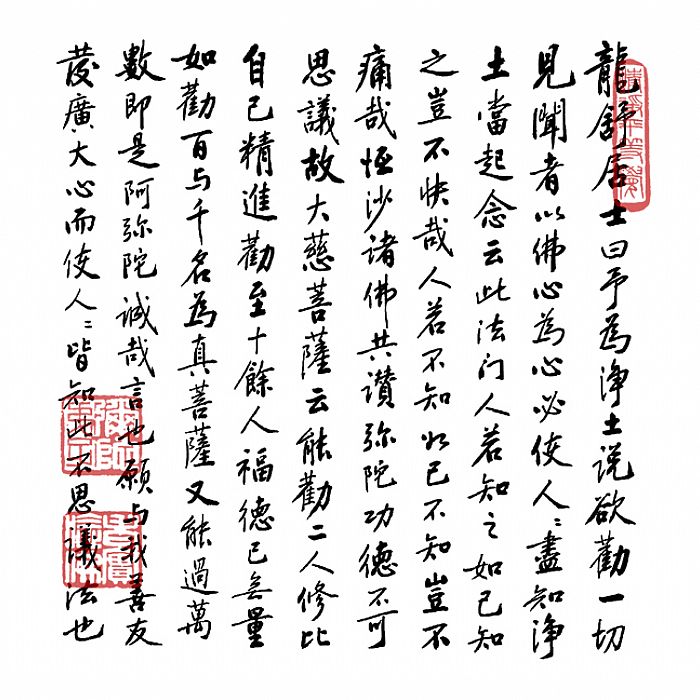 龍舒居士曰予為淨土说欲勸一切
見聞者以佛心為心必使人〻盡知淨
土當起念云此法门人若知之如己知
之豈不快哉人若不知如己不知豈不
痛哉恒沙諸佛共讃弥陀功德不可
思議故大慈菩薩云能勸二人修比
自己精進勸至十餘人福德已無量
如勸百与千名為真菩薩又能過萬
數即是阿弥陀誠哉言也願与我善友
發廣大心而使人〻皆知此不思議法也